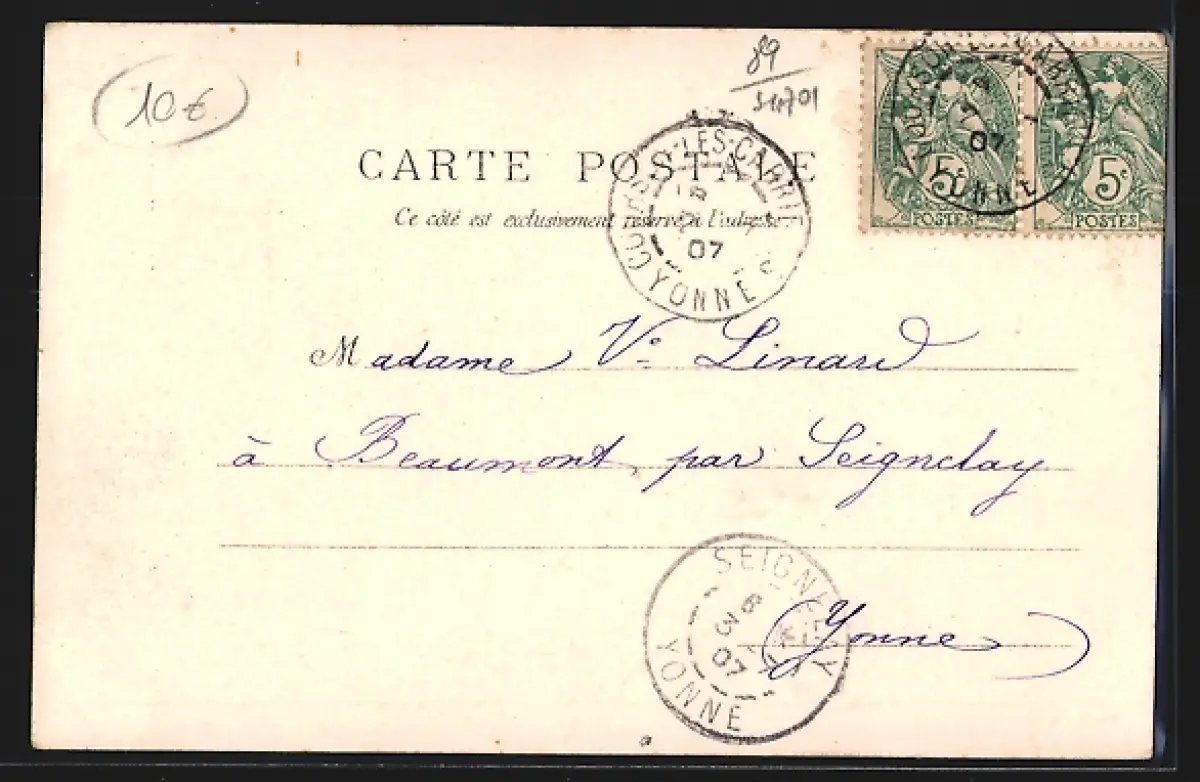 10€
89
CARTE POSTALE
Ce côté est exclusivement réservé à l'adresse
COURSON-LES-CARRIÈRES
07
YONNE
5c
POSTES
5c
POSTES
COURSON-LES-CARRIÈRES
07
YONNE
Madame Ve Linard
à Beaumont par Seignelay
(Yonne)
SEIGNELAY
6
3
07
YONNE